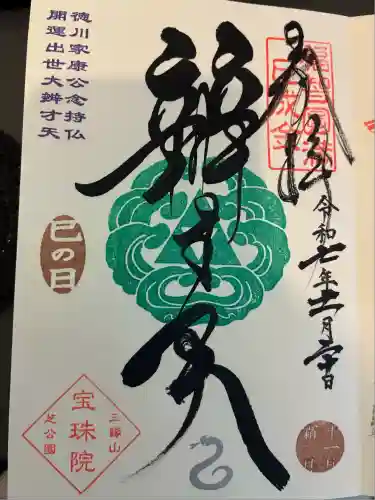 奉拝
令和七年十一月二十日
辨才天
徳川家康公念持仏
開運出世大辨才天
巳の日
三縁山
宝珠院
芝公園